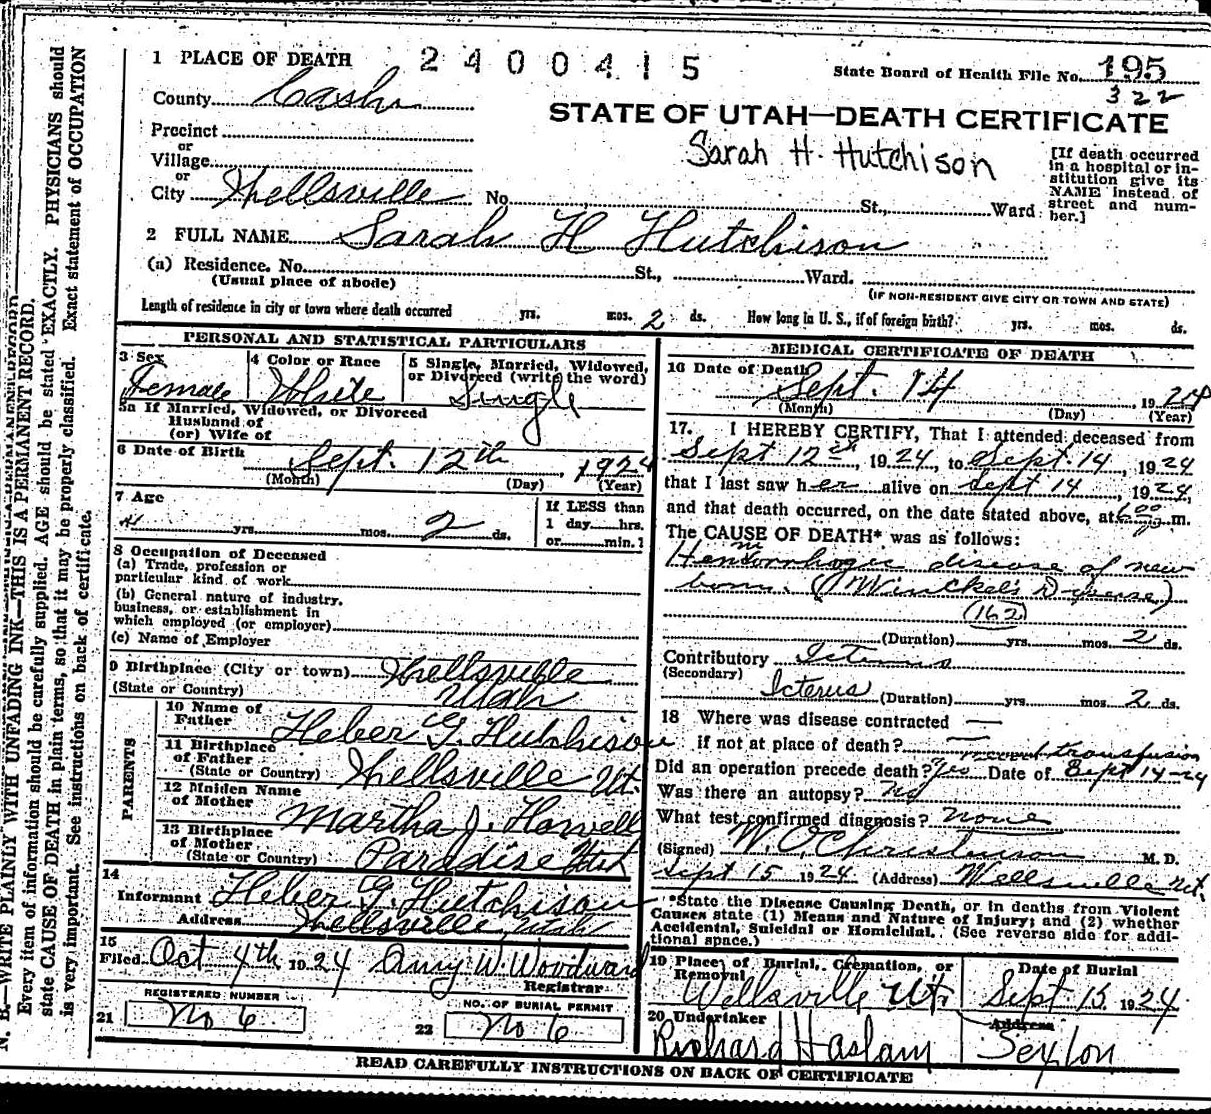 1 PLACE OF DEATH 2400415
State Board of Health File No. 195
322
County Cash
STATE OF UTAH—DEATH CERTIFICATE
Sarah H. Hutchison
Precinct
or
Village
or
City Wellsville No. St., Ward
[If death occurred
in a hospital or in-
stitution give its
NAME instead of
street and num-
ber.]
2 FULL NAME Sarah H Hutchison
(a) Residence. No. St., Ward.
(Usual place of abode)
(IF NON-RESIDENT GIVE CITY OR TOWN AND STATE)
Length of residence in city or town where death occurred yrs. mos. 2 ds. How long in U. S., if of foreign birth? yrs. mos. ds.
PERSONAL AND STATISTICAL PARTICULARS
3 Sex
Female
4 Color or Race
White
5 Single, Married, Widowed,
or Divorced (write the word)
Single
5a If Married, Widowed, or Divorced
Husband of
(or) Wife of
6 Date of Birth Sept. 12th, 1924
(Month) (Day) (Year)
7 Age
yrs. mos. 2 ds.
If LESS than
1 day hrs.
or min.
8 Occupation of Deceased
(a) Trade, profession or
particular kind of work
(b) General nature of industry,
business, or establishment in
which employed (or employer)
(c) Name of Employer
9 Birthplace (City or town) Wellsville
(State or Country) Utah
PARENTS
10 Name of
Father Heber G. Hutchison
11 Birthplace
of Father
(State or Country) Wellsville Ut.
12 Maiden Name
of Mother Martha J. Howell
13 Birthplace
of Mother
(State or Country) Paradise Utah
14
Informant Heber G. Hutchison
Address Wellsville, Utah
15
Filed Oct 4th 1924 Amy W. Woodward
Registrar
REGISTERED NUMBER
21 No 6
NO. OF BURIAL PERMIT
22 No 6
MEDICAL CERTIFICATE OF DEATH
16 Date of Death
Sept. 14, 1924
(Month) (Day) (Year)
17. I HEREBY CERTIFY, That I attended deceased from
Sept 12th, 1924, to Sept. 14, 1924
that I last saw her alive on Sept 14, 1924,
and that death occurred, on the date stated above, at 6:00 m.
The CAUSE OF DEATH* was as follows:
Hemorrhagic disease of new
born. (Winckel's Disease)
(162)
(Duration) yrs. mos. 2 ds.
Contributory Icterus
(Secondary)
Icterus (Duration) yrs. mos. 2 ds.
18 Where was disease contracted —
if not at place of death? —
transfusion
Did an operation precede death? Yes Date of Sept 14-24
Was there an autopsy? No
What test confirmed diagnosis? none
(Signed) W. O. Christenson M. D.
Sept 15 1924 (Address) Wellsville Ut.
*State the Disease Causing Death, or in deaths from Violent
Causes state (1) Means and Nature of Injury; and (2) whether
Accidental, Suicidal or Homicidal. (See reverse side for addi-
tional space.)
19 Place of Burial, Cremation, or
Removal
Wellsville Ut.
Date of Burial
Sept 15 1924
20 Undertaker
Richard Haslam
Address
Sexton
READ CAREFULLY INSTRUCTIONS ON BACK OF CERTIFICATE
N. B.—WRITE PLAINLY WITH UNFADING INK—THIS IS A PERMANENT RECORD.
Every item of information should be carefully supplied. AGE should be stated EXACTLY. PHYSICIANS should
state CAUSE OF DEATH in plain terms, so that it may be properly classified. Exact statement of OCCUPATION
is very important. See instructions on back of certificate.